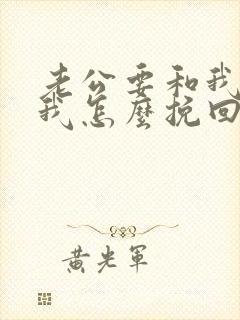 老公要和我
我怎麼挽回
黃光軍